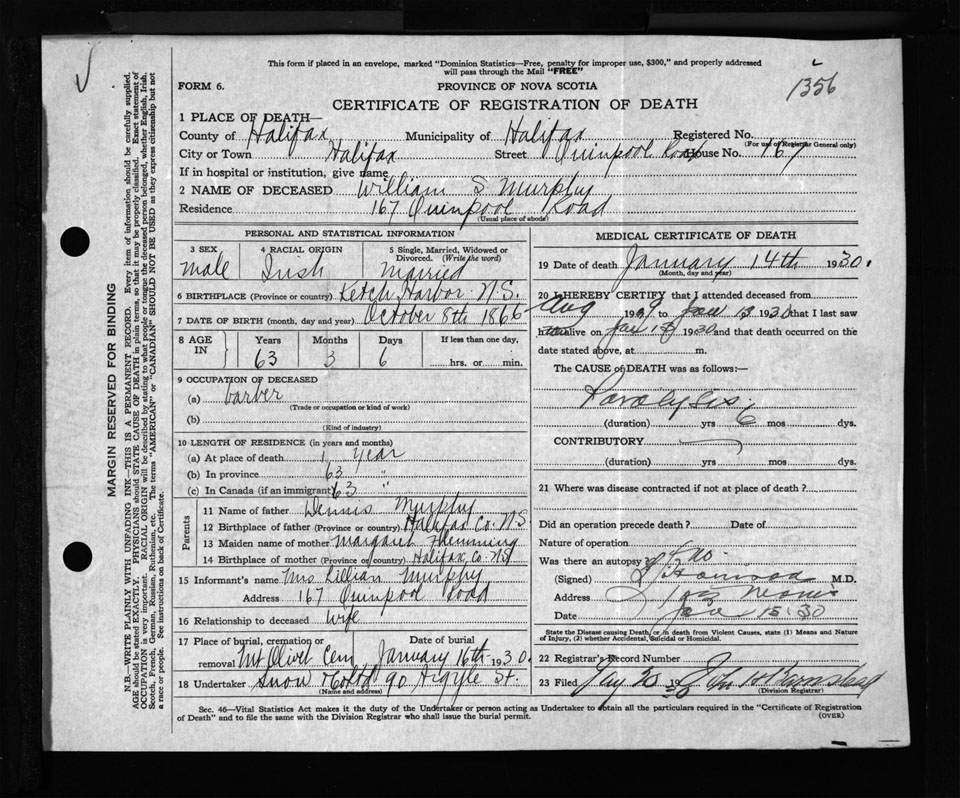 This form if placed in an envelope, marked "Dominion Statistics—Free, penalty for improper use, $300," and properly addressed
will pass through the Mail "FREE"
1356
FORM 6.
PROVINCE OF NOVA SCOTIA
CERTIFICATE OF REGISTRATION OF DEATH
1 PLACE OF DEATH—
County of Halifax Municipality of Halifax Registered No.
(For use of Registrar General only)
City or Town Halifax Street Quinpool Road House No. 167
If in hospital or institution, give name
2 NAME OF DECEASED William S Murphy
Residence 167 Quinpool Road
(Usual place of abode)
PERSONAL AND STATISTICAL INFORMATION
3 SEX
male
4 RACIAL ORIGIN
Irish
5 Single, Married, Widowed or Divorced. (Write the word)
Married
6 BIRTHPLACE (Province or country) Ketch Harbor N.S.
7 DATE OF BIRTH (month, day and year) October 8th 1866
8 AGE IN
Years Months Days If less than one day,
63 3 6 hrs. or min.
9 OCCUPATION OF DECEASED
(a) barber
(Trade or occupation or kind of work)
(b)
(Kind of industry)
10 LENGTH OF RESIDENCE (in years and months)
(a) At place of death 1 year
(b) In province 63 "
(c) In Canada (if an immigrant) 63 "
Parents
11 Name of father Dennis Murphy
12 Birthplace of father (Province or country) Halifax Co. N.S
13 Maiden name of mother Margaret Flemming
14 Birthplace of mother (Province or country) Halifax, Co. N.S
15 Informant's name Mrs Lillian Murphy
Address 167 Quinpool Road
16 Relationship to deceased wife
17 Place of burial, cremation or removal Mt Olivet Cem
Date of burial January 16th 1930.
18 Undertaker Snow & Co Ltd 90 Argyle St.
(Name and address)
MEDICAL CERTIFICATE OF DEATH
19 Date of death January 14th 1930.
(Month, day and year)
20 I HEREBY CERTIFY that I attended deceased from
Aug 1929 to Jan 13 1930 that I last saw
h alive on Jan 13 1930 and that death occurred on the
date stated above, at m.
The CAUSE OF DEATH was as follows:—
Paralysis
(duration) yrs 6 mos dys.
CONTRIBUTORY
(duration) yrs mos dys.
21 Where was disease contracted if not at place of death?
Did an operation precede death? Date of
Nature of operation
Was there an autopsy? no
(Signed) M.D.
Address
Date Jan 15/30
State the Disease causing Death, or in death from Violent Causes, state (1) Means and Nature
of Injury, (2) whether Accidental, Suicidal or Homicidal.
22 Registrar's Record Number
23 Filed 19
(Division Registrar)
Sec. 46—Vital Statistics Act makes it the duty of the Undertaker or person acting as Undertaker to obtain all the particulars required in the "Certificate of Registration
of Death" and to file the same with the Division Registrar who shall issue the burial permit.
(OVER)
MARGIN RESERVED FOR BINDING
N.B.—WRITE PLAINLY WITH UNFADING INK—THIS IS A PERMANENT RECORD. Every item of information should be carefully supplied.
AGE should be stated EXACTLY. PHYSICIANS should STATE CAUSE OF DEATH in plain terms, so that it may be properly classified. Exact statement of
OCCUPATION is very important. RACIAL ORIGIN will be described by stating to what people or tongue the deceased person belonged, whether English, Irish,
Scotch, French, German, Russian, Ruthenian, etc. The terms "AMERICAN" or "CANADIAN" SHOULD NOT BE USED as they express citizenship but not
a race or people. See instructions on back of Certificate.